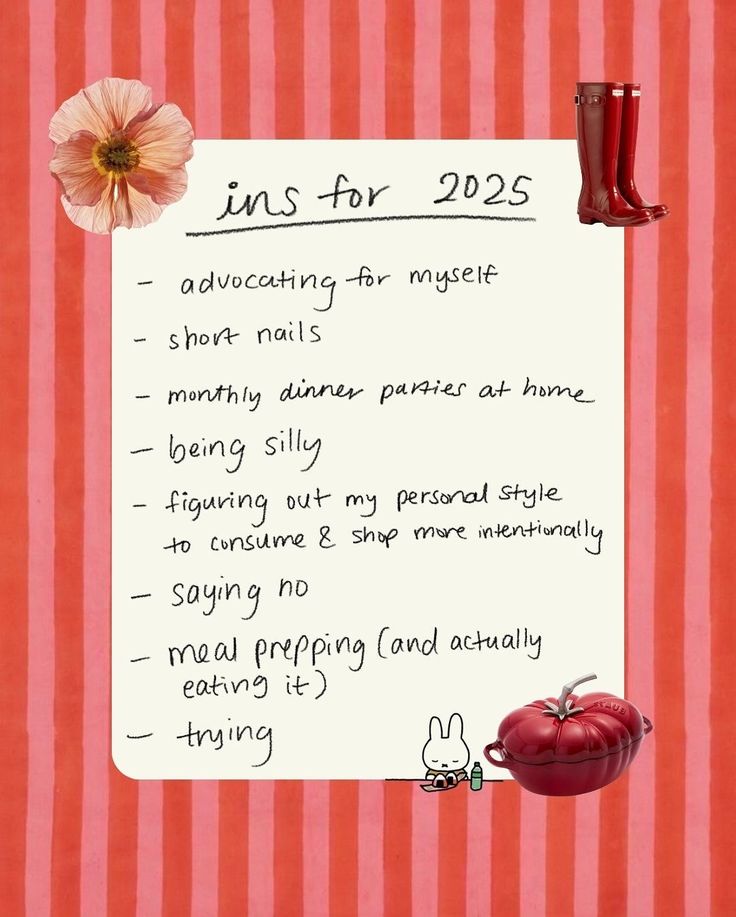 ins for 2025
- advocating for myself
- short nails
- monthly dinner parties at home
- being silly
- figuring out my personal style
to consume & shop more intentionally
- saying no
- meal prepping (and actually
eating it)
- trying
STAUB